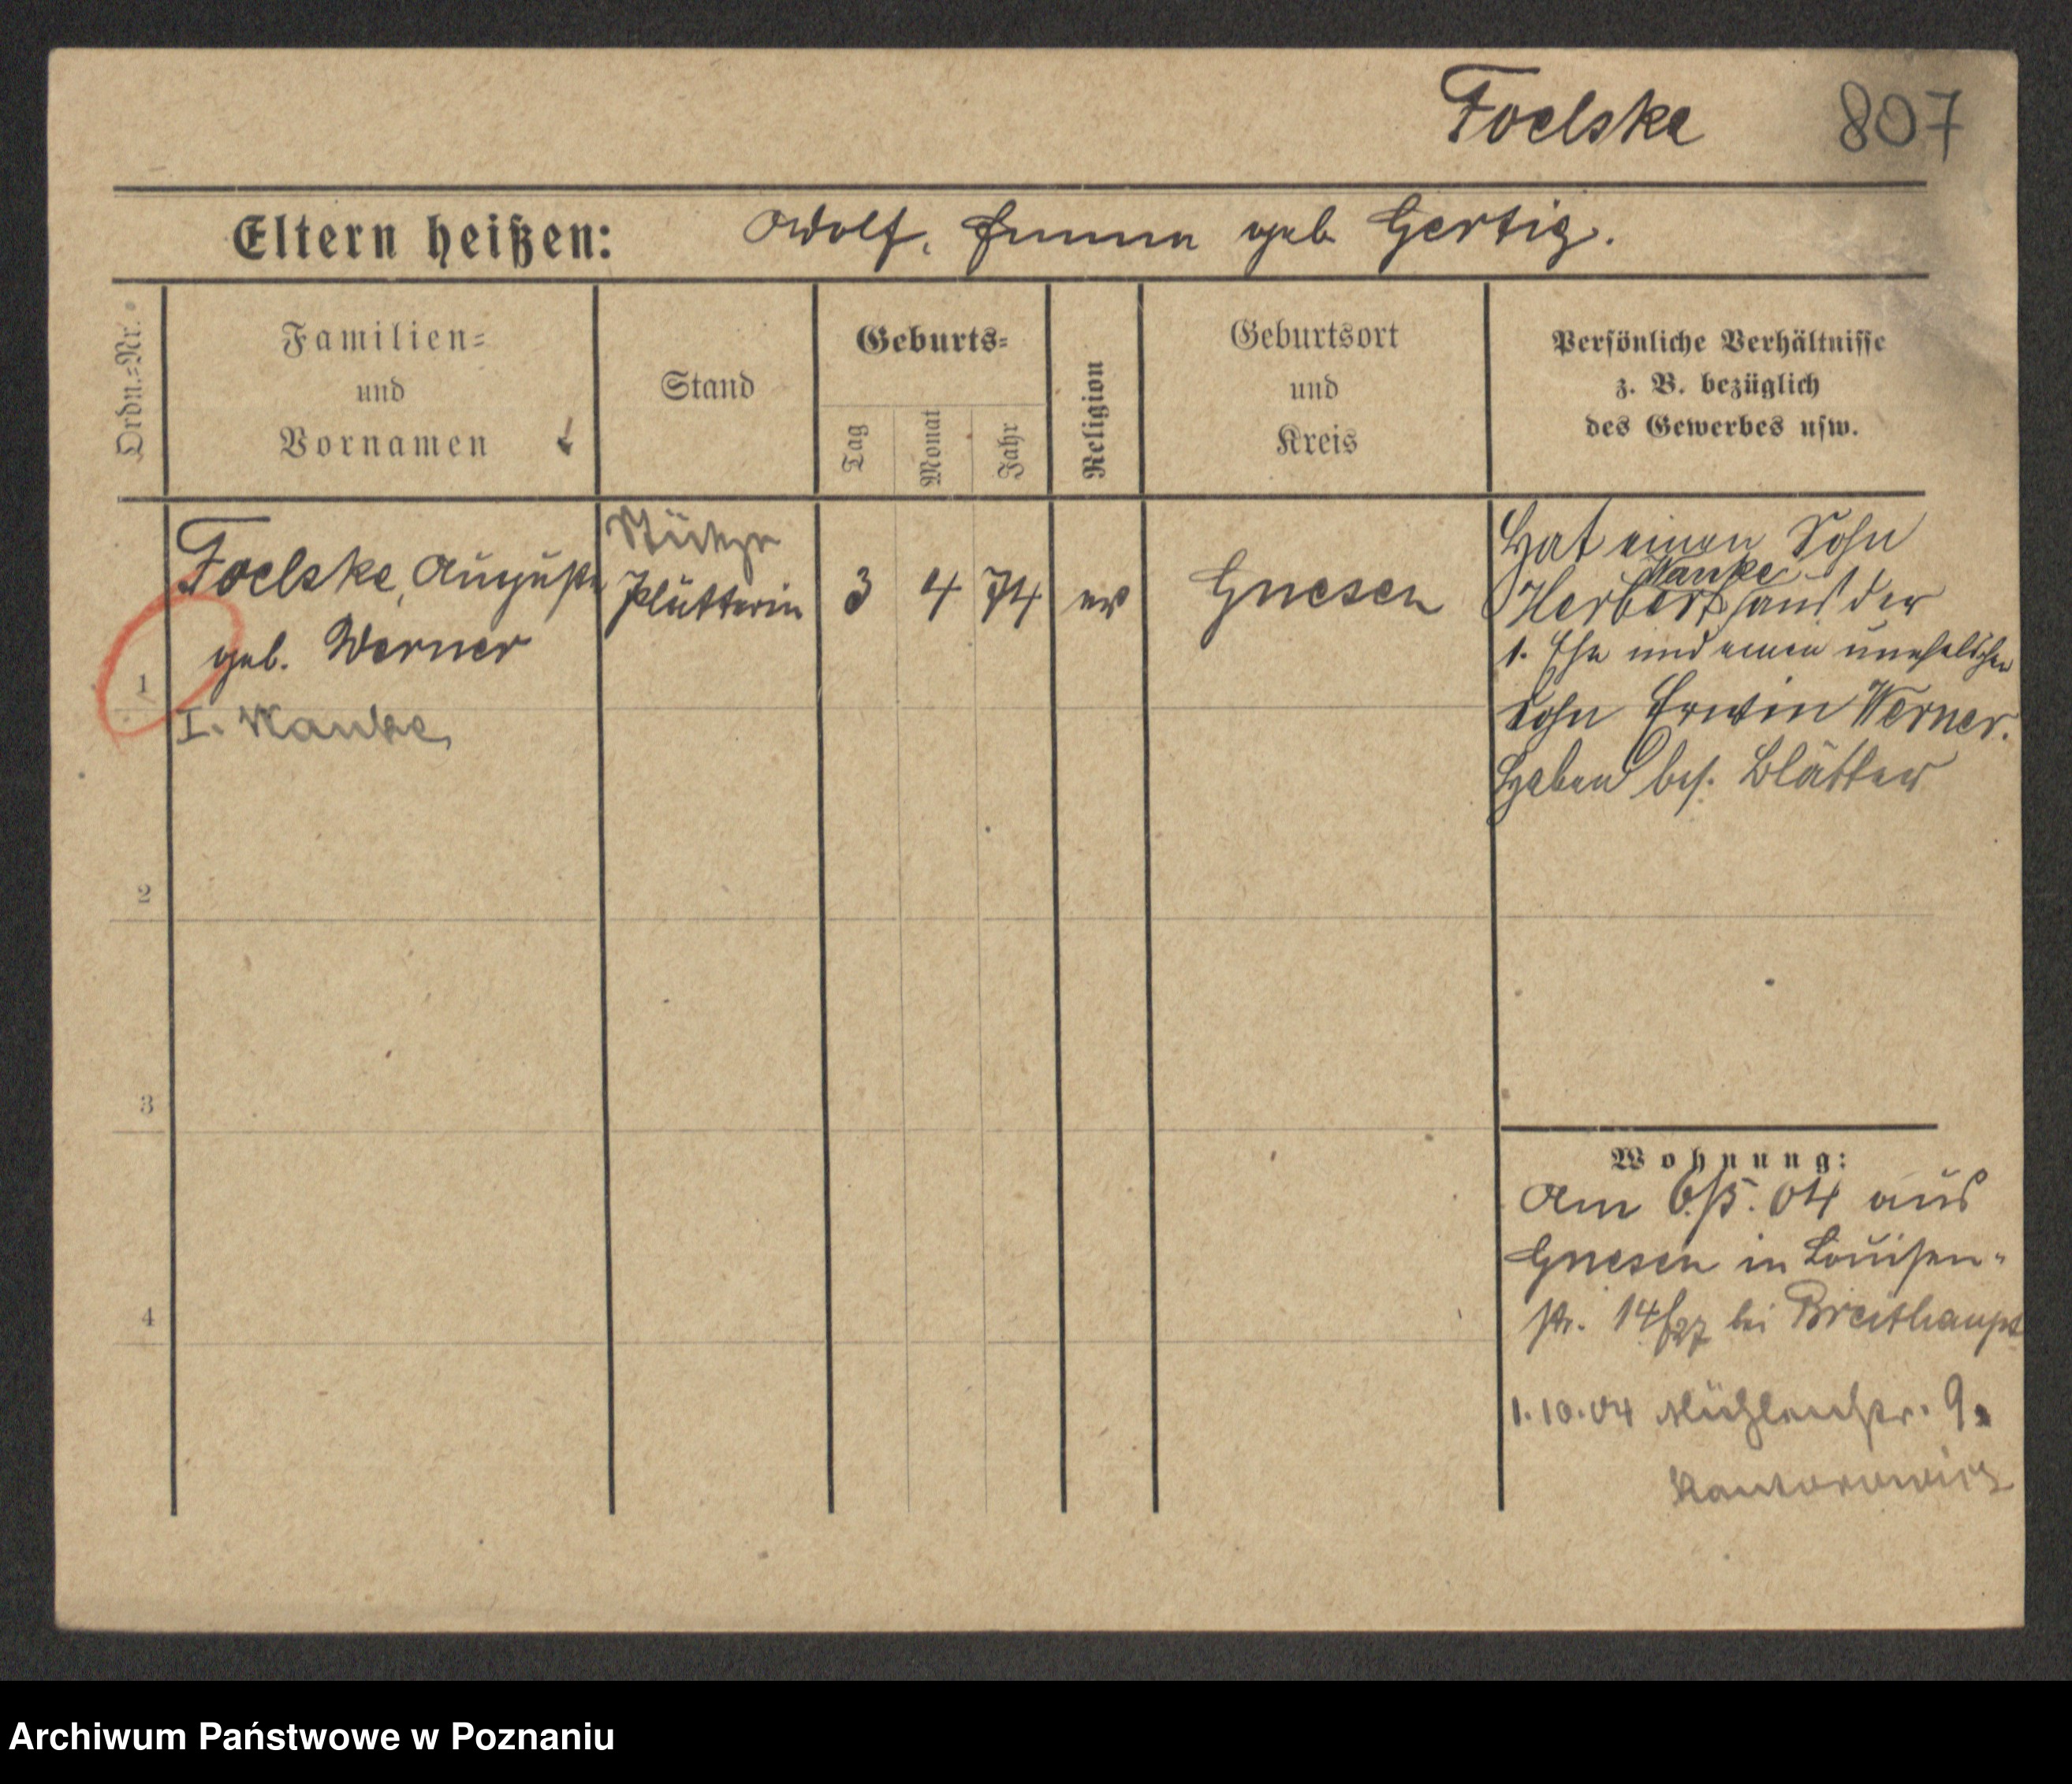 Foelske 807
Eltern heißen: Adolf, Emma geb Gertig.
Ordn.=Nr.
Familien=
und
Vornamen
Stand
Geburts=
Tag
Monat
Jahr
Religion
Geburtsort
und
Kreis
Persönliche Verhältnisse
z. B. bezüglich
des Gewerbes usw.
1
Foelske, Auguste
geb. Werner
I. Manke,
Stütze
Plätterin
3 4 74 ev Gnesen
Hat einen Sohn
Manke
Herbert aus der
1. Ehe und einen unehelichen
Sohn Erwin Werner.
Haben bes. Blätter
2
3
4
Wohnung:
Am 6/5. 04 aus
Gnesen in Louisen-
str. 14/27 bei Breithaupt
1.10.04 Mühlenstr. 9.
Kantorowicz
Archiwum Państwowe w Poznaniu